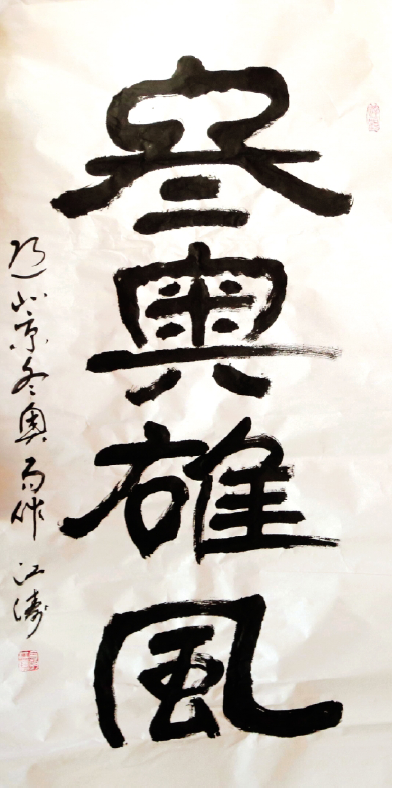 冬奥雄風
迎北京冬奥而作 江涛